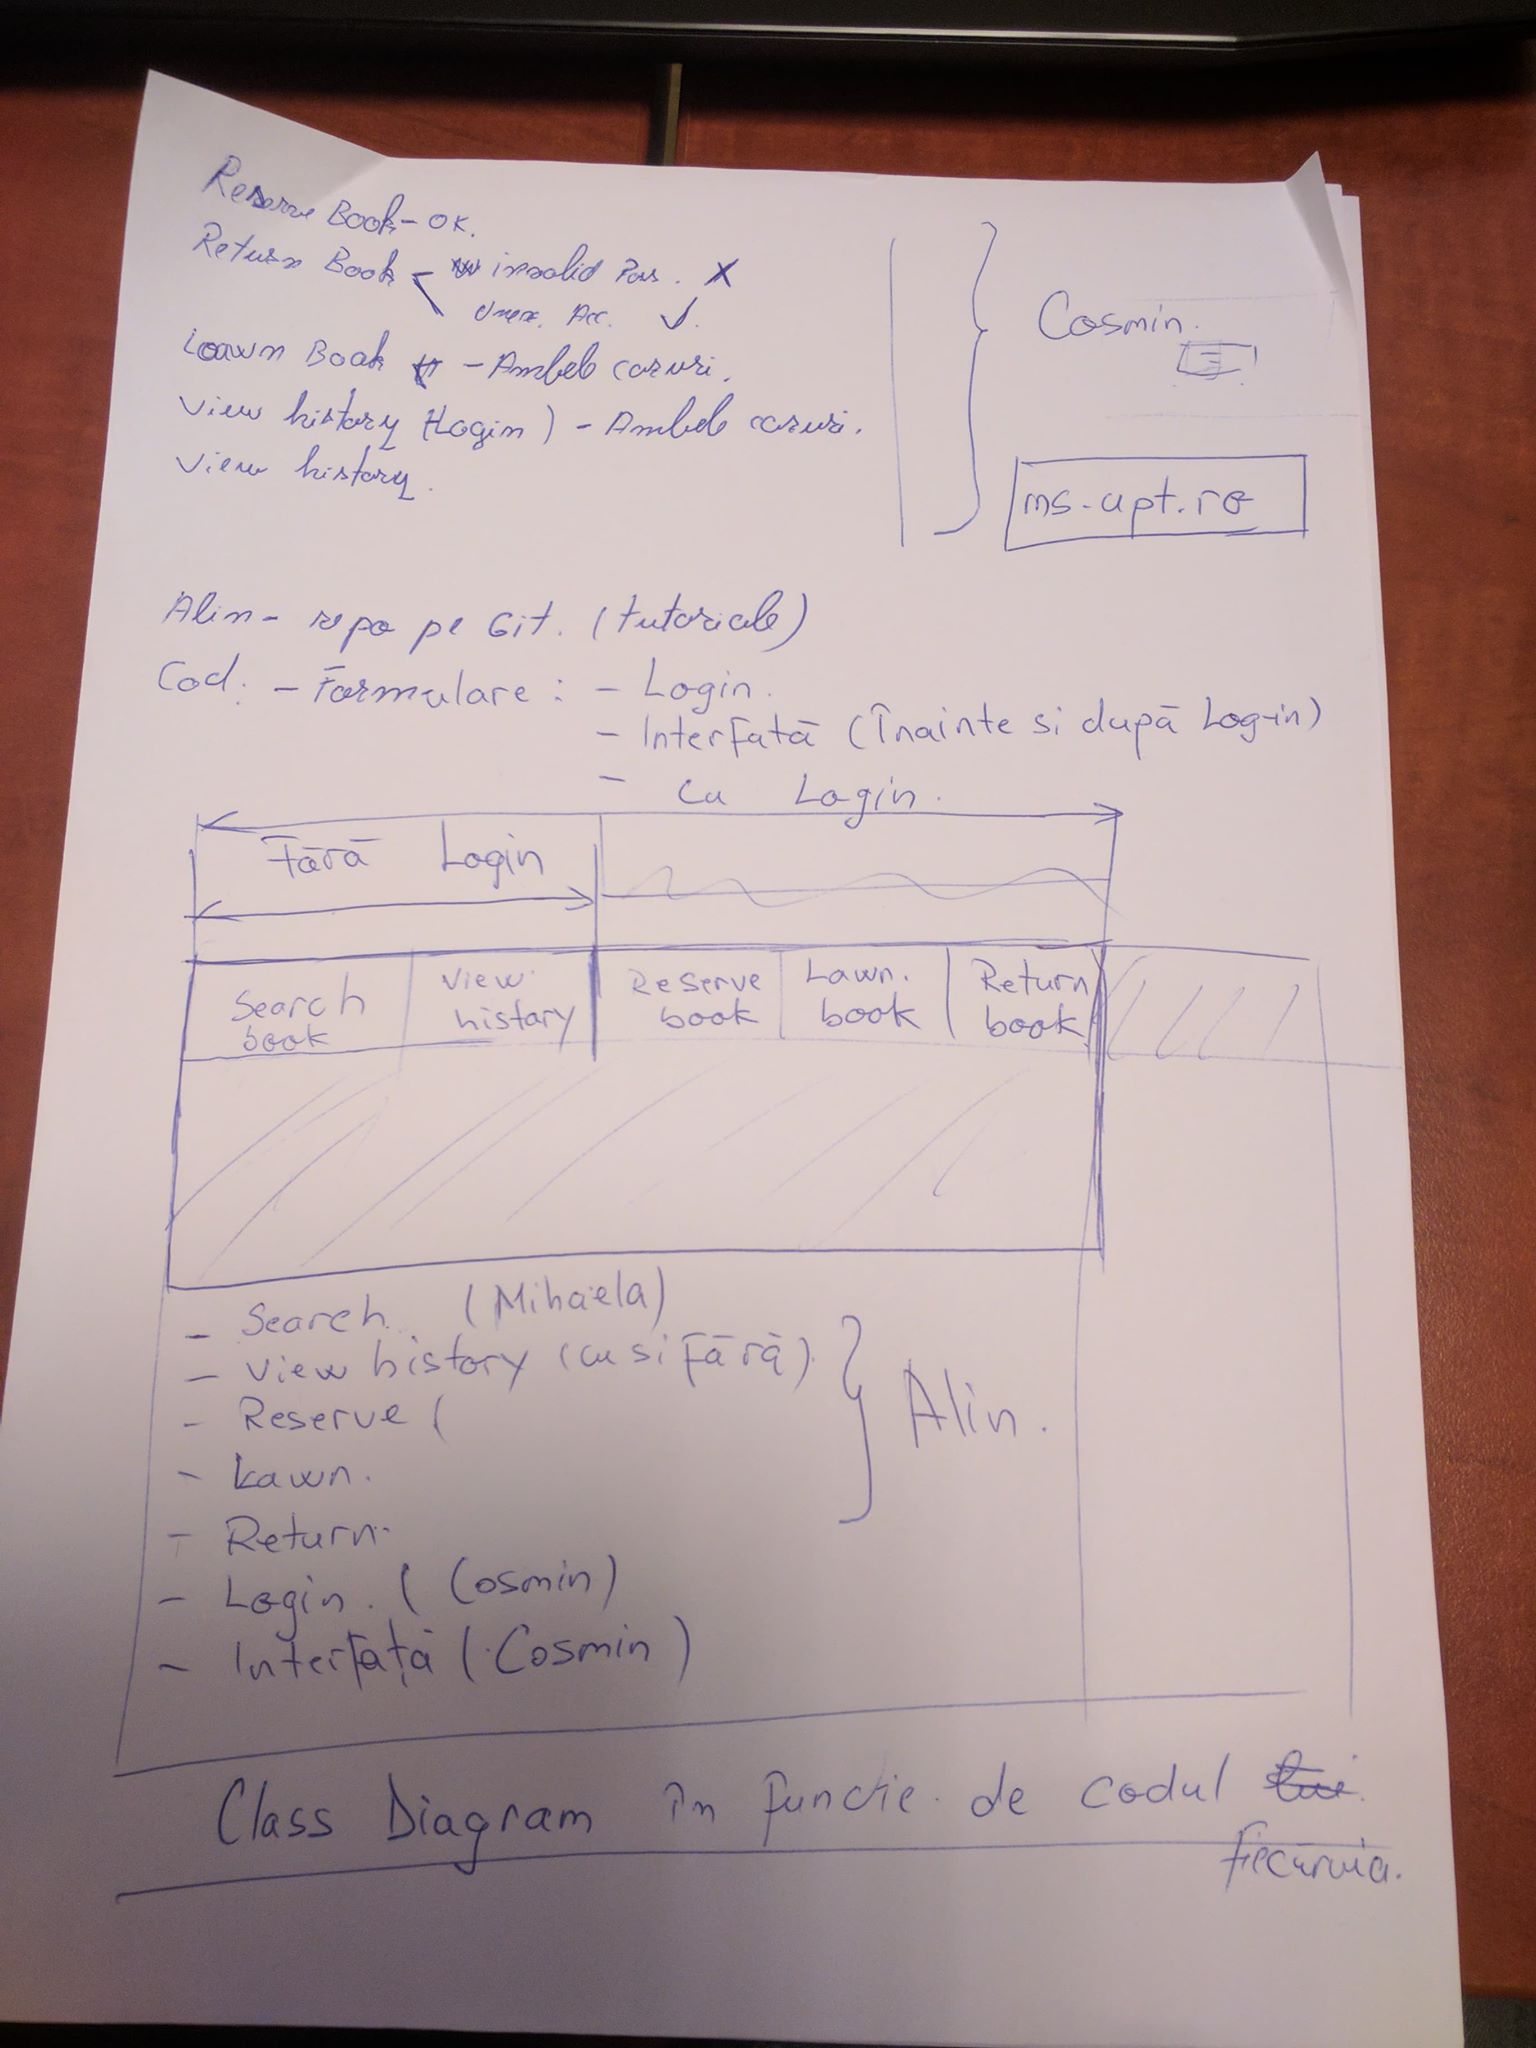 Reserve Book - OK.
Return Book - invalid Pass. X
Unex. Acc. ✓.
Loawn Book - Ambele cazuri.
View history (Login) - Ambele cazuri.
View history.
Cosmin.
ms.upt.ro
Alin - repo pe Git. (tutoriale)
Cod: - Formulare: - Login.
- Interfată (Înainte si după Log-in)
-
Cu Login.
Fără Login
Search book
View history
Reserve book
Lawn. book
Return book
- Search. (Mihaela)
- View history (cu si fără).
- Reserve (
- Lawn.
- Return.
Alin.
- Login. (Cosmin)
- Interfață (Cosmin)
Class Diagram în functie de codul
fiecăruia.